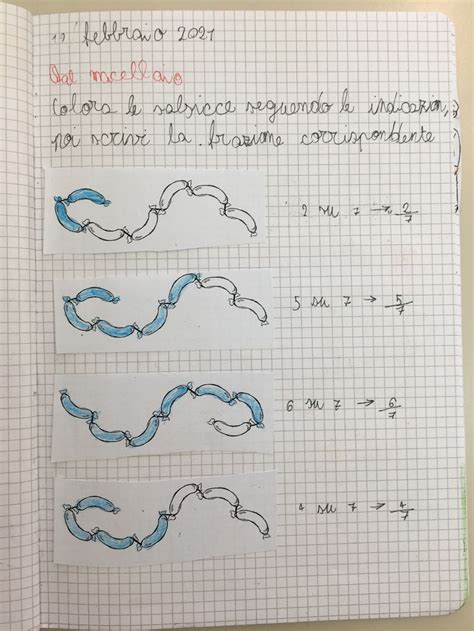 febbraio 2021
Dal macellaio
Colora le salsicce seguendo le indicazioni,
poi scrivi la frazione corrispondente
2 su 7 → 2/7
5 su 7 → 5/7
6 su 7 → 6/7
4 su 7 → 4/7